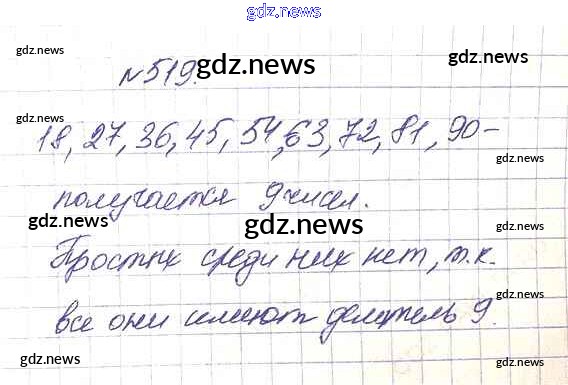 gdz.news
gdz.news gdz.news
№519. gdz.news
gdz.news
18, 27, 36, 45, 54, 63, 72, 81, 90 –
gdz.news
получается 9 чисел.
gdz.news gdz.news gdz.news
Простых среди них нет, т.к.
gdz.news gdz.news
все они имеют делитель 9.
gdz.news gdz.news